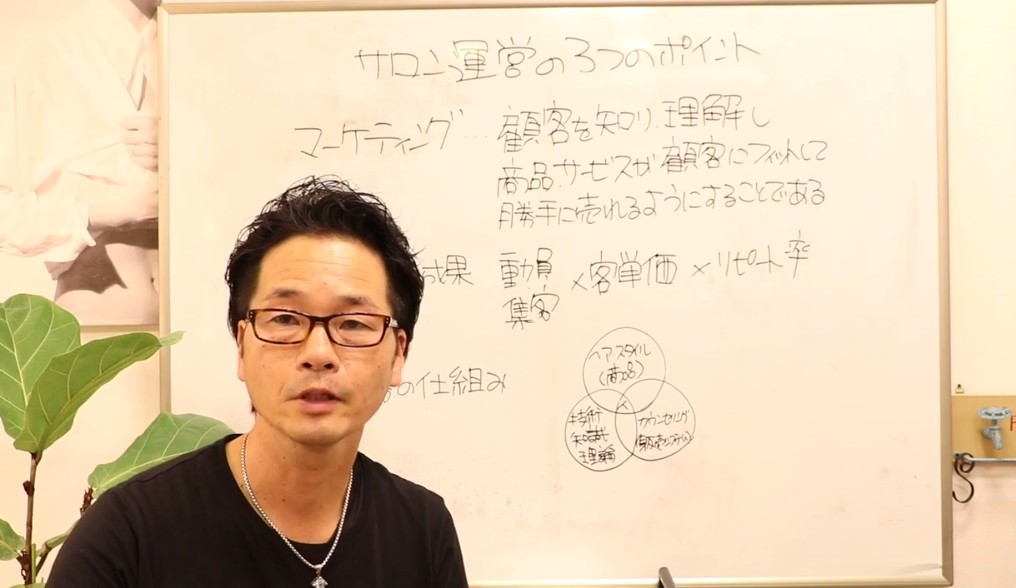 サロン運営の3つのポイント
マーケティング… 顧客を知り、理解し
商品、サービスが顧客にフィットして
勝手に売れるようにすることである
成果 動員 × 客単価 × リピート率
集客
の仕組み
ヘアスタイル
(商品)
技術
知識
理論
カウンセリング